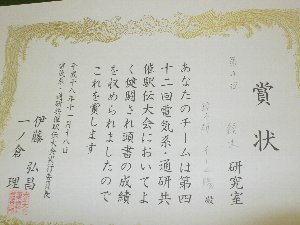 賞状
研究室
殿
あなたのチームは第四
十二回電気系・通研共
催駅伝大会においてよ
く健闘され頭書の成績
を収められましたので
これを賞します
平成十八年十一月十八日
電気系・通研共催駅伝大会実行委員長
伊藤弘昌
一ノ倉理